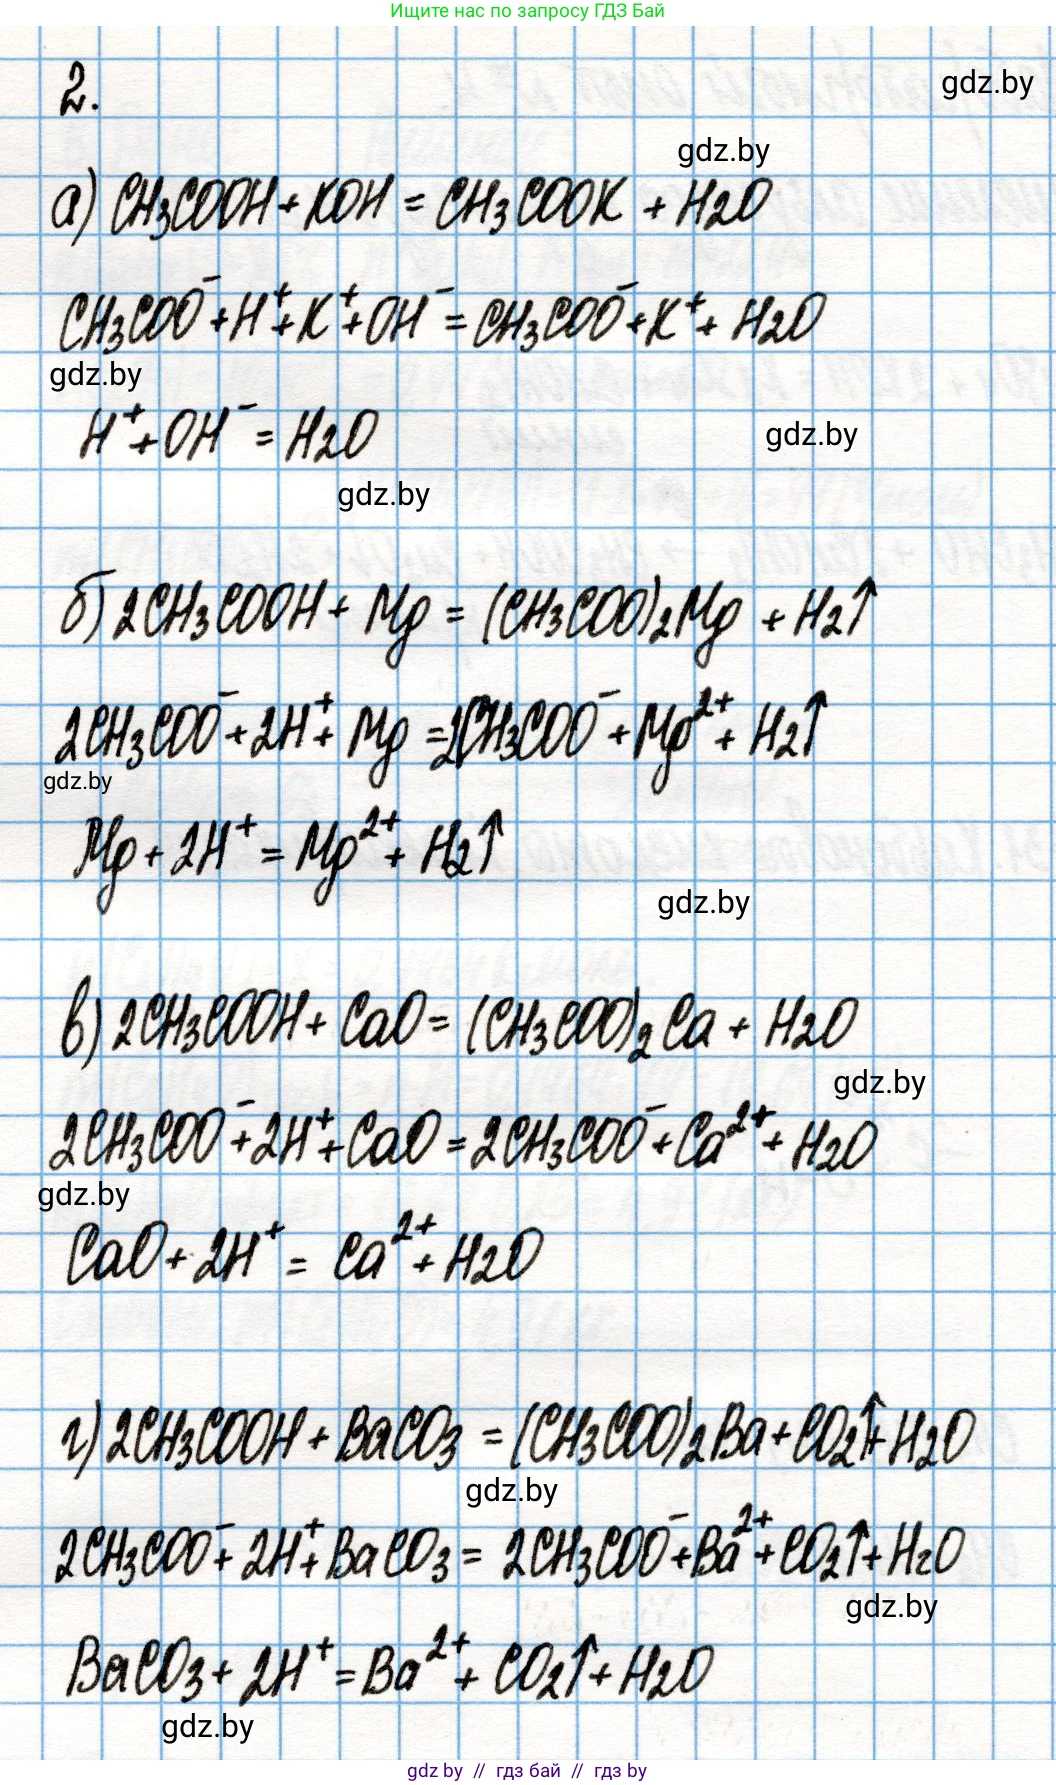 Ищите нас по запросу ГДЗ Бай
2.
gdz.by
gdz.by
а) CH3COOH + KOH = CH3COOK + H2O
CH3COO⁻ + H⁺ + K⁺ + OH⁻ = CH3COO⁻ + K⁺ + H2O
gdz.by
H⁺ + OH⁻ = H2O
gdz.by
gdz.by
б) 2CH3COOH + Mg = (CH3COO)2Mg + H2↑
2CH3COO⁻ + 2H⁺ + Mg = 2CH3COO⁻ + Mg²⁺ + H2↑
gdz.by
Mg + 2H⁺ = Mg²⁺ + H2↑
gdz.by
в) 2CH3COOH + CaO = (CH3COO)2Ca + H2O
gdz.by
2CH3COO⁻ + 2H⁺ + CaO = 2CH3COO⁻ + Ca²⁺ + H2O
gdz.by
CaO + 2H⁺ = Ca²⁺ + H2O
г) 2CH3COOH + BaCO3 = (CH3COO)2Ba + CO2↑ + H2O
gdz.by
2CH3COO⁻ + 2H⁺ + BaCO3 = 2CH3COO⁻ + Ba²⁺ + CO2↑ + H2O
gdz.by
BaCO3 + 2H⁺ = Ba²⁺ + CO2↑ + H2O
gdz.by
gdz by // гдз бай // gdz by